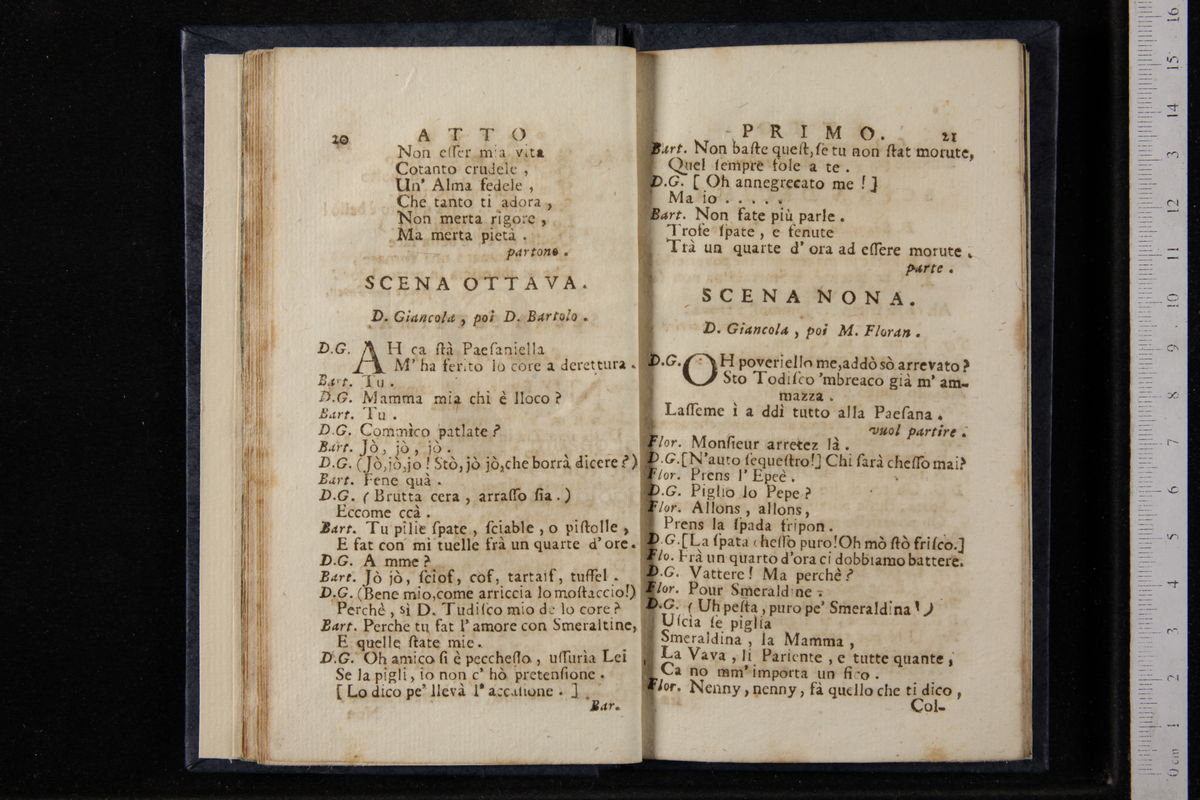 20 ATTO
Non eſſer mia vita
Cotanto crudele,
Un' Alma fedele,
Che tanto ti adora,
Non merta rigore,
Ma merta pietà.
partono.
SCENA OTTAVA.
D. Giancola, poi D. Bartolo.
D.G. AH ca ſtà Paeſaniella
M' ha ferito lo core a derettura.
Bart. Tu.
D.G. Mamma mia chi è lloco?
Bart. Tu.
D.G. Commico patlate?
Bart. Jò, jò, jò.
D.G. (Jò, jò, jo! Stò, jò jò, che borrà dicere?)
Bart. Fene quà.
D.G. (Brutta cera, arraſſo ſia.)
Eccome ccà.
Bart. Tu pilie ſpate, ſciable, o piſtolle,
E fat con mi tuelle frà un quarte d'ore.
D.G. A mme?
Bart. Jò jò, ſciof, cof, tartaif, tuffel.
D.G. (Bene mio, come arriccia lo moſtaccio!)
Perchè, sì D. Tudiſco mio de lo core?
Bart. Perche tu fat l'amore con Smeraltine,
E quelle ſtate mie.
D.G. Oh amico ſi è peccheſto, uſſuria Lei
Se la pigli, io non c' hò pretenſione.
[Lo dico pe' llevà l' accaſione.]
Bar.
PRIMO. 21
Bart. Non baſte queſt, ſe tu non ſtat morute,
Quel ſempre fole a te.
D.G. [Oh annegrecato me!]
Ma io . . . . .
Bart. Non fate più parle.
Trofe ſpate, e fenute
Trà un quarte d' ora ad eſſere morute.
parte.
SCENA NONA.
D. Giancola, poi M. Floran.
D.G. OH poveriello me, addò sò arrevato?
Sto Todiſco 'mbreaco già m' am-
mazza.
Laſſeme ì a ddì tutto alla Paeſana.
vuol partire.
Flor. Monſieur arretez là.
D.G. [N'auto ſequeſtro!] Chi ſarà cheſſo mai?
Flor. Prens l' Epeè.
D.G. Piglio lo Pepe?
Flor. Allons, allons,
Prens la ſpada fripon.
D.G. [La ſpata cheſſo puro! Oh mò ſtò friſco.]
Flo. Frà un quarto d'ora ci dobbiamo battere.
D.G. Vattere! Ma perchè?
Flor. Pour Smeraldine.
D.G. (Uh peſta, puro pe' Smeraldina!)
Uſcia ſe piglia
Smeraldina, la Mamma,
La Vava, li Pariente, e tutte quante,
Ca no mm' importa un fico.
Flor. Nenny, nenny, fà quello che ti dico,
Col-
0 cm 1 2 3 4 5 6 7 8 9 10 11 12 13 14 15 16